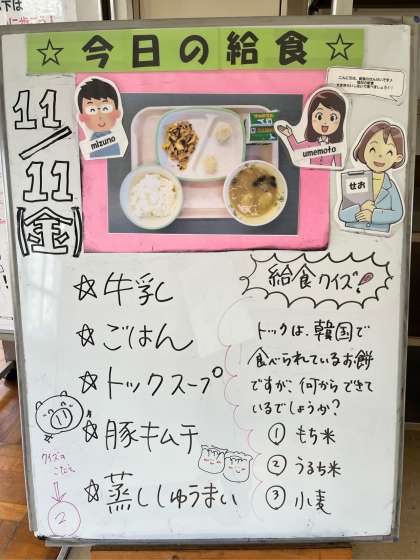 ☆今日の給食☆
11/11(金)
mizuno
umemoto
せお
☆牛乳
☆ごはん
☆トックスープ
☆豚キムチ
☆蒸ししゅうまい
給食クイズ!
トックは、韓国で
食べられているお餅
ですが、何からできて
いるでしょうか?
① もち米
② うるち米
③ 小麦
クイズの
こたえ
↓
②